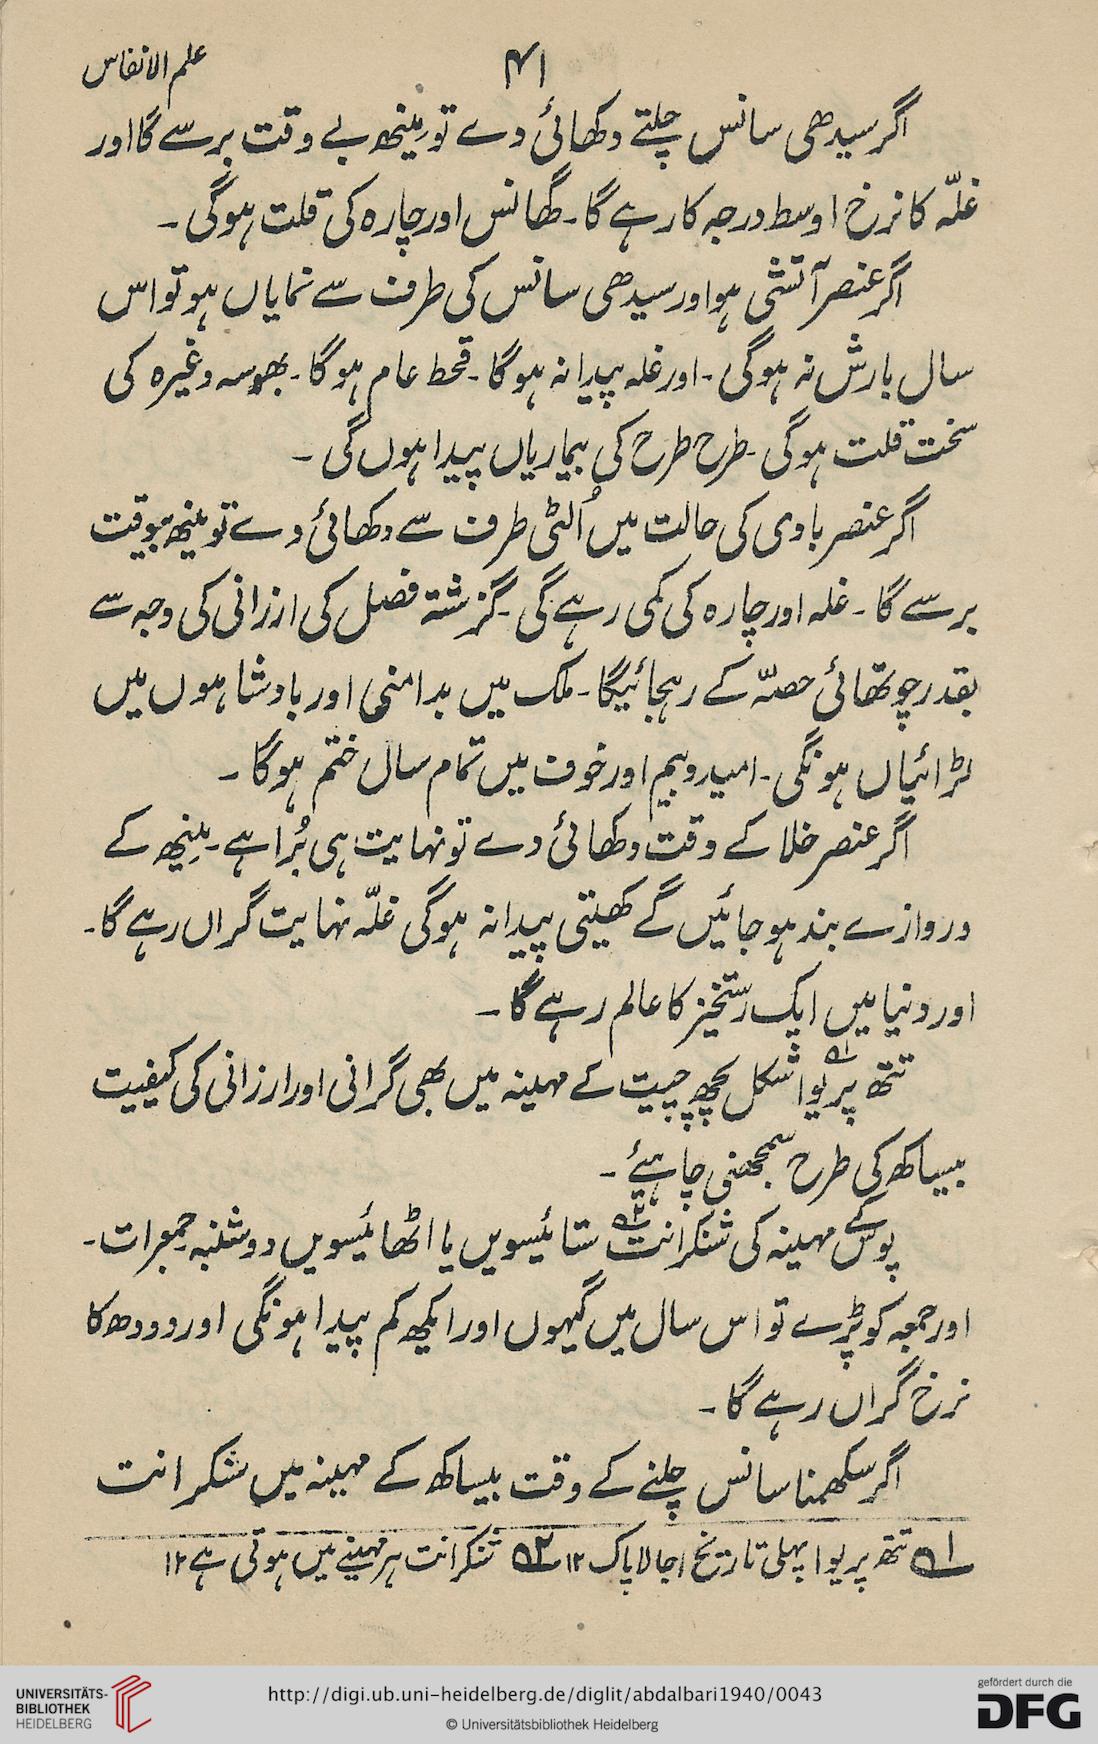 علم الانفاس
۴۱
اگر سیدھی سانس چلتے دکھائی دے تو مِینھ بے وقت برسے گا اور
غلّہ کا نرخ اوسط درجہ کا رہے گا۔ گھانس اور چارہ کی قلت ہوگی۔
اگر عنصر آتشی ہو اور سیدھی سانس کی طرف سے نمایاں ہو تو اس
سال بارش نہ ہوگی۔ اور غلہ پیدا نہ ہوگا۔ قحط عام ہوگا۔ بھوسہ وغیرہ کی
سخت قلت ہوگی۔ طرح طرح کی بیماریاں پیدا ہوں گی۔
اگر عنصر بادی کی حالت میں اُلٹی طرف سے دکھائی دے تو مینھ بیوقت
برسے گا۔ غلہ اور چارہ کی کمی رہے گی۔ گزشتہ فصل کی ارزانی کی وجہ سے
بقدر چوتھائی حصّہ کے رہجائیگا۔ ملک میں بدامنی اور بادشاہوں میں
لڑائیاں ہونگی۔ امید و بیم اور خوف میں تمام سال ختم ہوگا۔
اگر عنصر خلا کے وقت دکھائی دے تو نہایت ہی بُرا ہے۔ مِینھ کے
دروازے بند ہو جائیں گے کھیتی پیدا نہ ہوگی غلّہ نہایت گراں رہے گا۔
اور دنیا میں ایک رستخیز کا عالم رہے گا۔
تتھ پریوا ؎۱ شکل پچھ چیت کے مہینہ میں بھی گرانی اور ارزانی کی کیفیت
بیساکھ کی طرح سمجھنی چاہیئے۔
پوس کے مہینہ کی شنکرانت ؎۲ ستائیسویں یا اٹھائیسویں دوشنبہ جمعرات۔
اور جمعہ کو پڑے تو اس سال میں گیہوں اور ایکھ کم پیدا ہونگی اور دودھ کا
نرخ گراں رہے گا۔
اگر سکھمنا سانس چلنے کے وقت بیساکھ کے مہینہ میں شنکرانت
؎۱ تتھ پریوا پہلی تاریخ اجالا پاک ۱۲ ؎۲ شنکرانت ہر مہینے میں ہوتی ہے ۱۲
UNIVERSITÄTS-
BIBLIOTHEK
HEIDELBERG
http://digi.ub.uni-heidelberg.de/diglit/abdalbari1940/0043
© Universitätsbibliothek Heidelberg
gefördert durch die
DFG